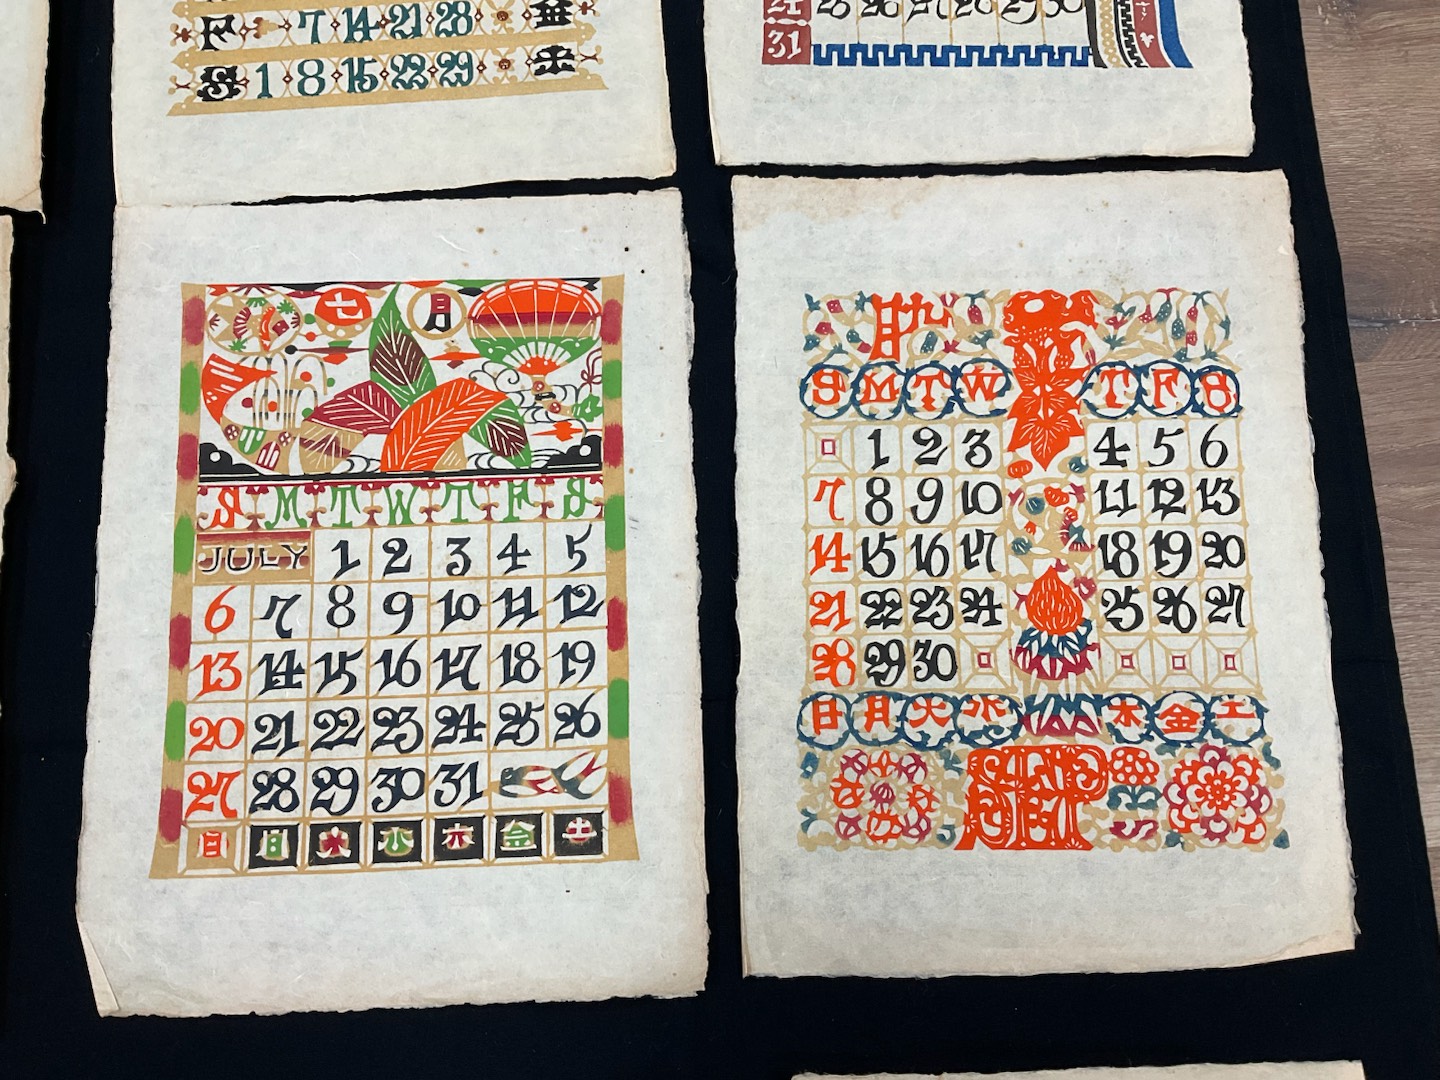 F 7 14 21 28 金
S 1 8 15 22 29 土
24 25 26 27 28 29 30
31
七 月
S M T W T F S
JULY 1 2 3 4 5
6 7 8 9 10 11 12
13 14 15 16 17 18 19
20 21 22 23 24 25 26
27 28 29 30 31
日 月 火 水 木 金 土
九月
S M T W T F S
1 2 3 4 5 6
7 8 9 10 11 12 13
14 15 16 17 18 19 20
21 22 23 24 25 26 27
28 29 30
日 月 火 水 木 金 土
SEP